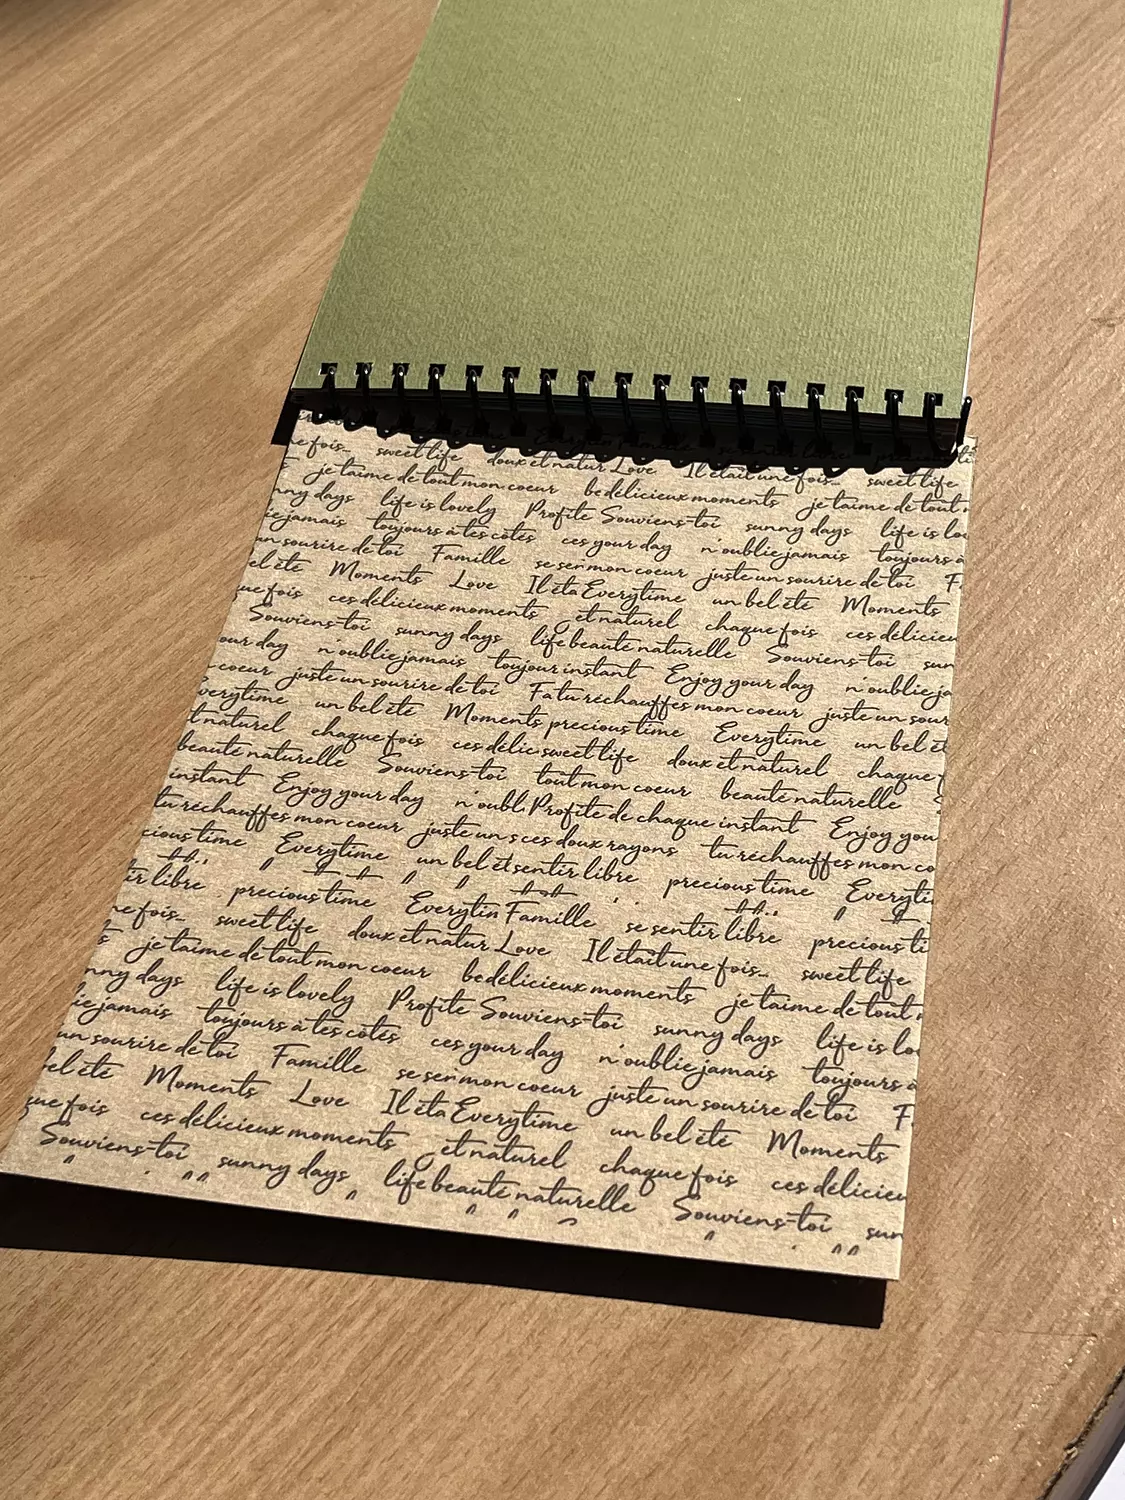 ne fois... sweet life doux et natur Love Il était une fois... sweet life
je t'aime de tout mon coeur be délicieux moments je t'aime de tout
nny days life is lovely Profite Souviens-toi sunny days life is lo
ie jamais toujours à tes côtés ces your day n'oublie jamais toujours à
un sourire de toi Famille se se mon coeur juste un sourire de toi F
el été Moments Love Il éta Everytime un bel été Moments
que fois ces délicieux moments et naturel chaque fois ces délicieu
Souviens-toi sunny days life beauté naturelle Souviens-toi sun
our day n'oublie jamais toujour instant Enjoy your day n'oublie ja
coeur juste un sourire de toi Fa tu réchauffes mon coeur juste un sour
verytime un bel été Moments precious time Everytime un bel ét
t naturel chaque fois ces délic sweet life doux et naturel chaque f
beauté naturelle Souviens-toi tout mon coeur beauté naturelle
instant Enjoy your day n'oubl Profite de chaque instant Enjoy you
tu réchauffes mon coeur juste un s ces doux rayons tu réchauffes mon co
cious time Everytime un bel ét sentir libre precious time Everyti
ir libre precious time Everytim Famille se sentir libre precious ti
ne fois... sweet life doux et natur Love Il était une fois... sweet life
je t'aime de tout mon coeur be délicieux moments je t'aime de tout
nny days life is lovely Profite Souviens-toi sunny days life is lo
ie jamais toujours à tes côtés ces your day n'oublie jamais toujours à
un sourire de toi Famille se se mon coeur juste un sourire de toi F
el été Moments Love Il éta Everytime un bel été Moments
que fois ces délicieux moments et naturel chaque fois ces délicieu
Souviens-toi sunny days life beauté naturelle Souviens-toi sun